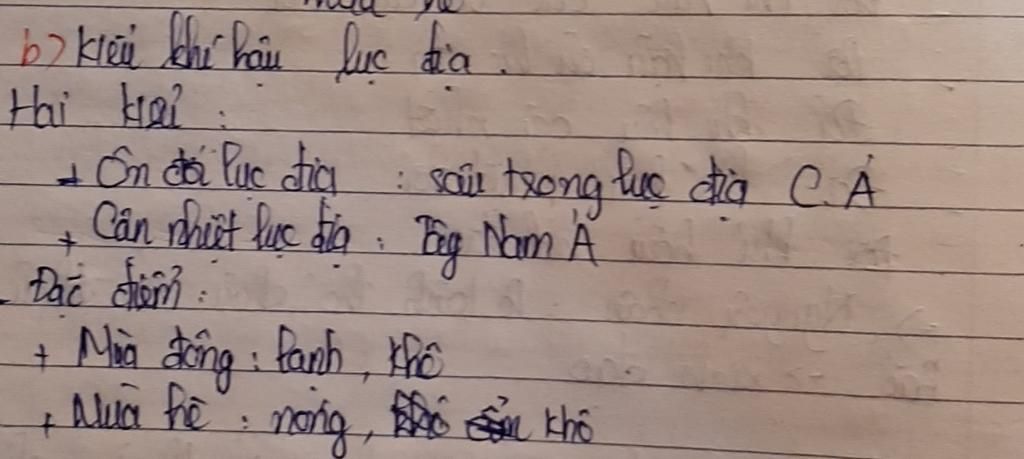 b) Kiểu khí hậu lục địa.
Hai loại :
+ Ôn đới lục địa : sâu trong lục địa C. Á
+ Cận nhiệt lục địa : Nam Á
- Đặc điểm :
+ Mùa đông : lạnh, khô
+ Mùa hè : nóng, khô